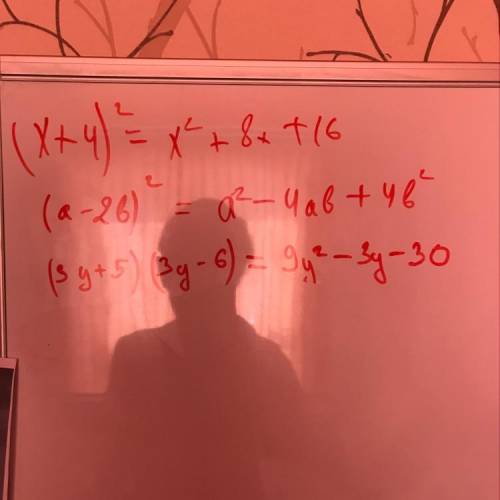 (x+4)² = x² + 8x + 16
(a-2b)² = a² - 4ab + 4b²
(3y+5)(3y-6) = 9y² - 3y - 30